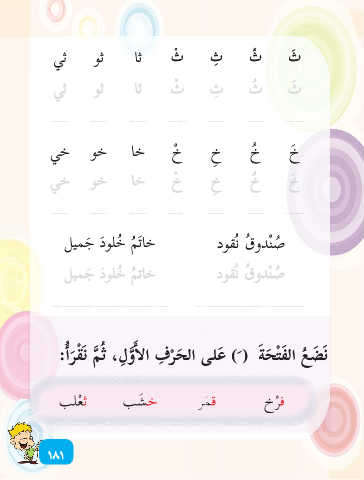 ثَ ثُ ثِ ثْ ثا ثو ثي
ثَ ثُ ثِ ثْ ثا ثو ثي
خَ خُ خِ خْ خا خو خي
خَ خُ خِ خْ خا خو خي
صُنْدوقُ نُقود خاتَمُ خُلودَ جَميل
صُنْدوقُ نُقود خاتَمُ خُلودَ جَميل
نَضَعُ الفَتْحَةَ (ـَ) عَلى الحَرْفِ الأَوَّلِ، ثُمَّ نَقْرَأُ:
فرْخ قمَر خشَب ثعْلب
١٨١